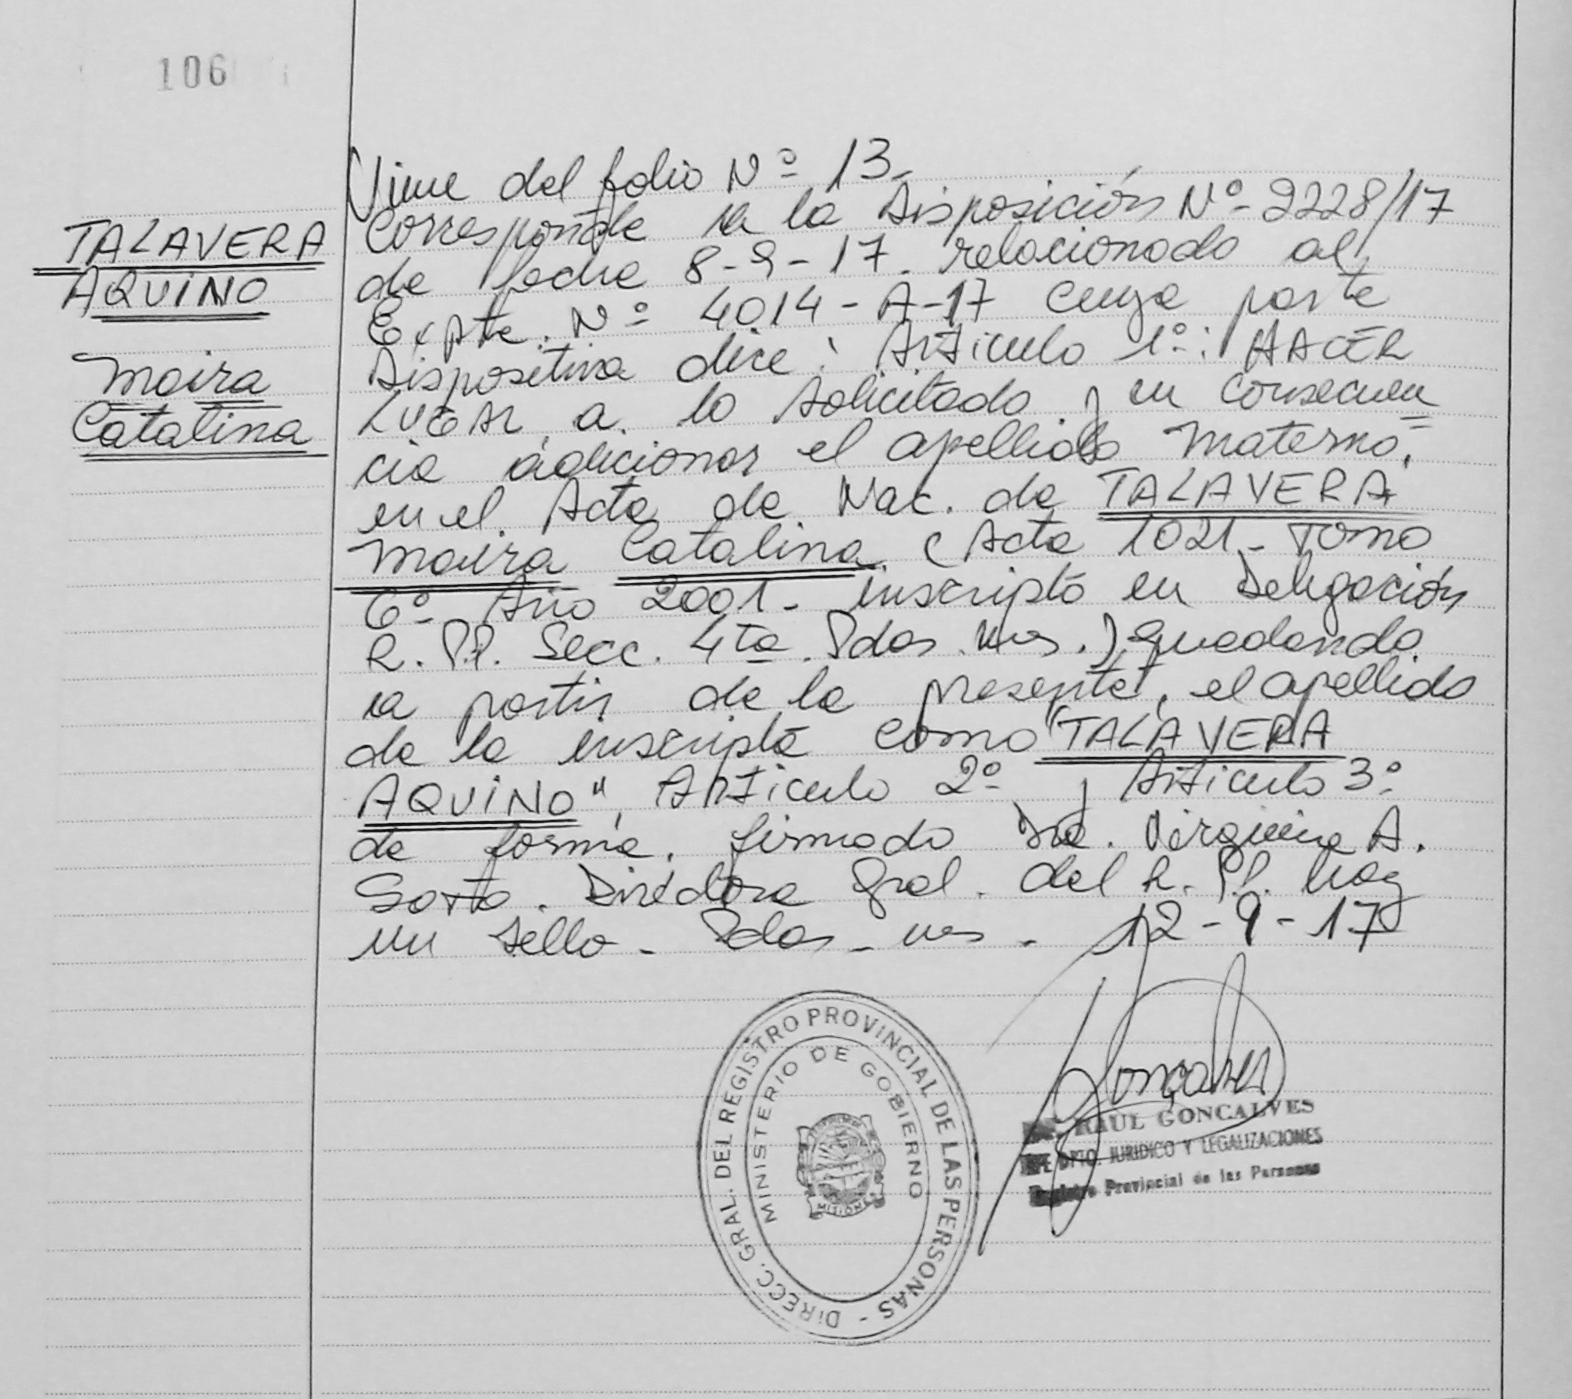 106
TALAVERA
AQUINO
Moira
Catalina
Viene del folio Nº 13.
Corresponde a la Disposición Nº 2228/17
de fecha 8-9-17. relacionado al
Expte. Nº 4014-A-17 cuya parte
Dispositiva dice: Artículo 1º: HACER
LUGAR a lo solicitado y en consecuen
cia adicionar el apellido Materno,
en el Acta de Nac. de TALAVERA
Moira Catalina (Acta 1021- Tomo
6º- Año 2001- inscripta en Delegación
R.P.P. Secc. 4ta. Pdas. Mnes.) quedando
a partir de la presente, el apellido
de la inscripta como "TALAVERA
AQUINO", Artículo 2º y Artículo 3º
de forma. firmado Dra. Virginia A.
Directora Gral. del R.P.P. hay
un sello - Pdas - Mnes - 12-9-17
DIRECC. GRAL. DEL REGISTRO PROVINCIAL DE LAS PERSONAS -
MINISTERIO DE GOBIERNO
MISIONES
Goncalves
RAUL GONCALVES
JEFE DPTO. JURIDICO Y LEGALIZACIONES
Registro Provincial de las Personas